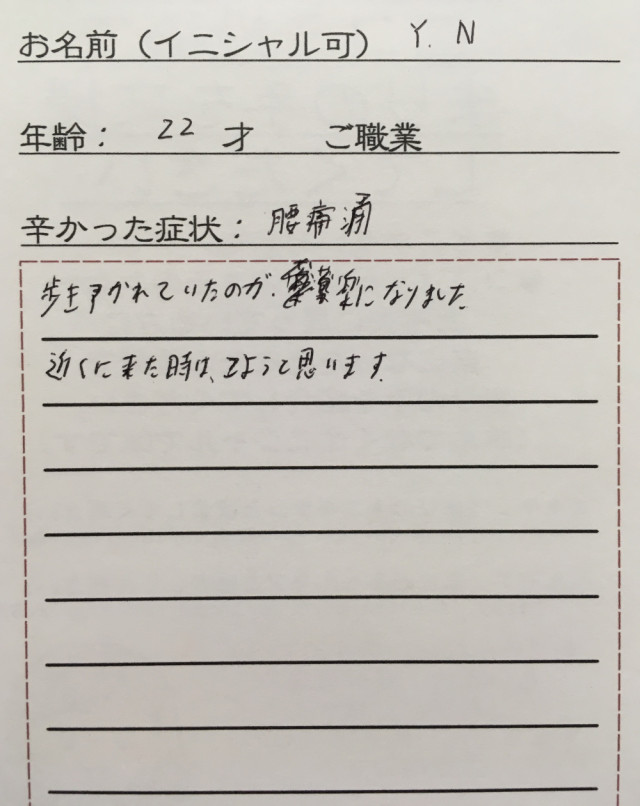 お名前（イニシャル可） Y. N
年齢： 22 才 ご職業
辛かった症状： 腰痛
歩き のが、楽になりました
近くに来た時は、 ようと思います。